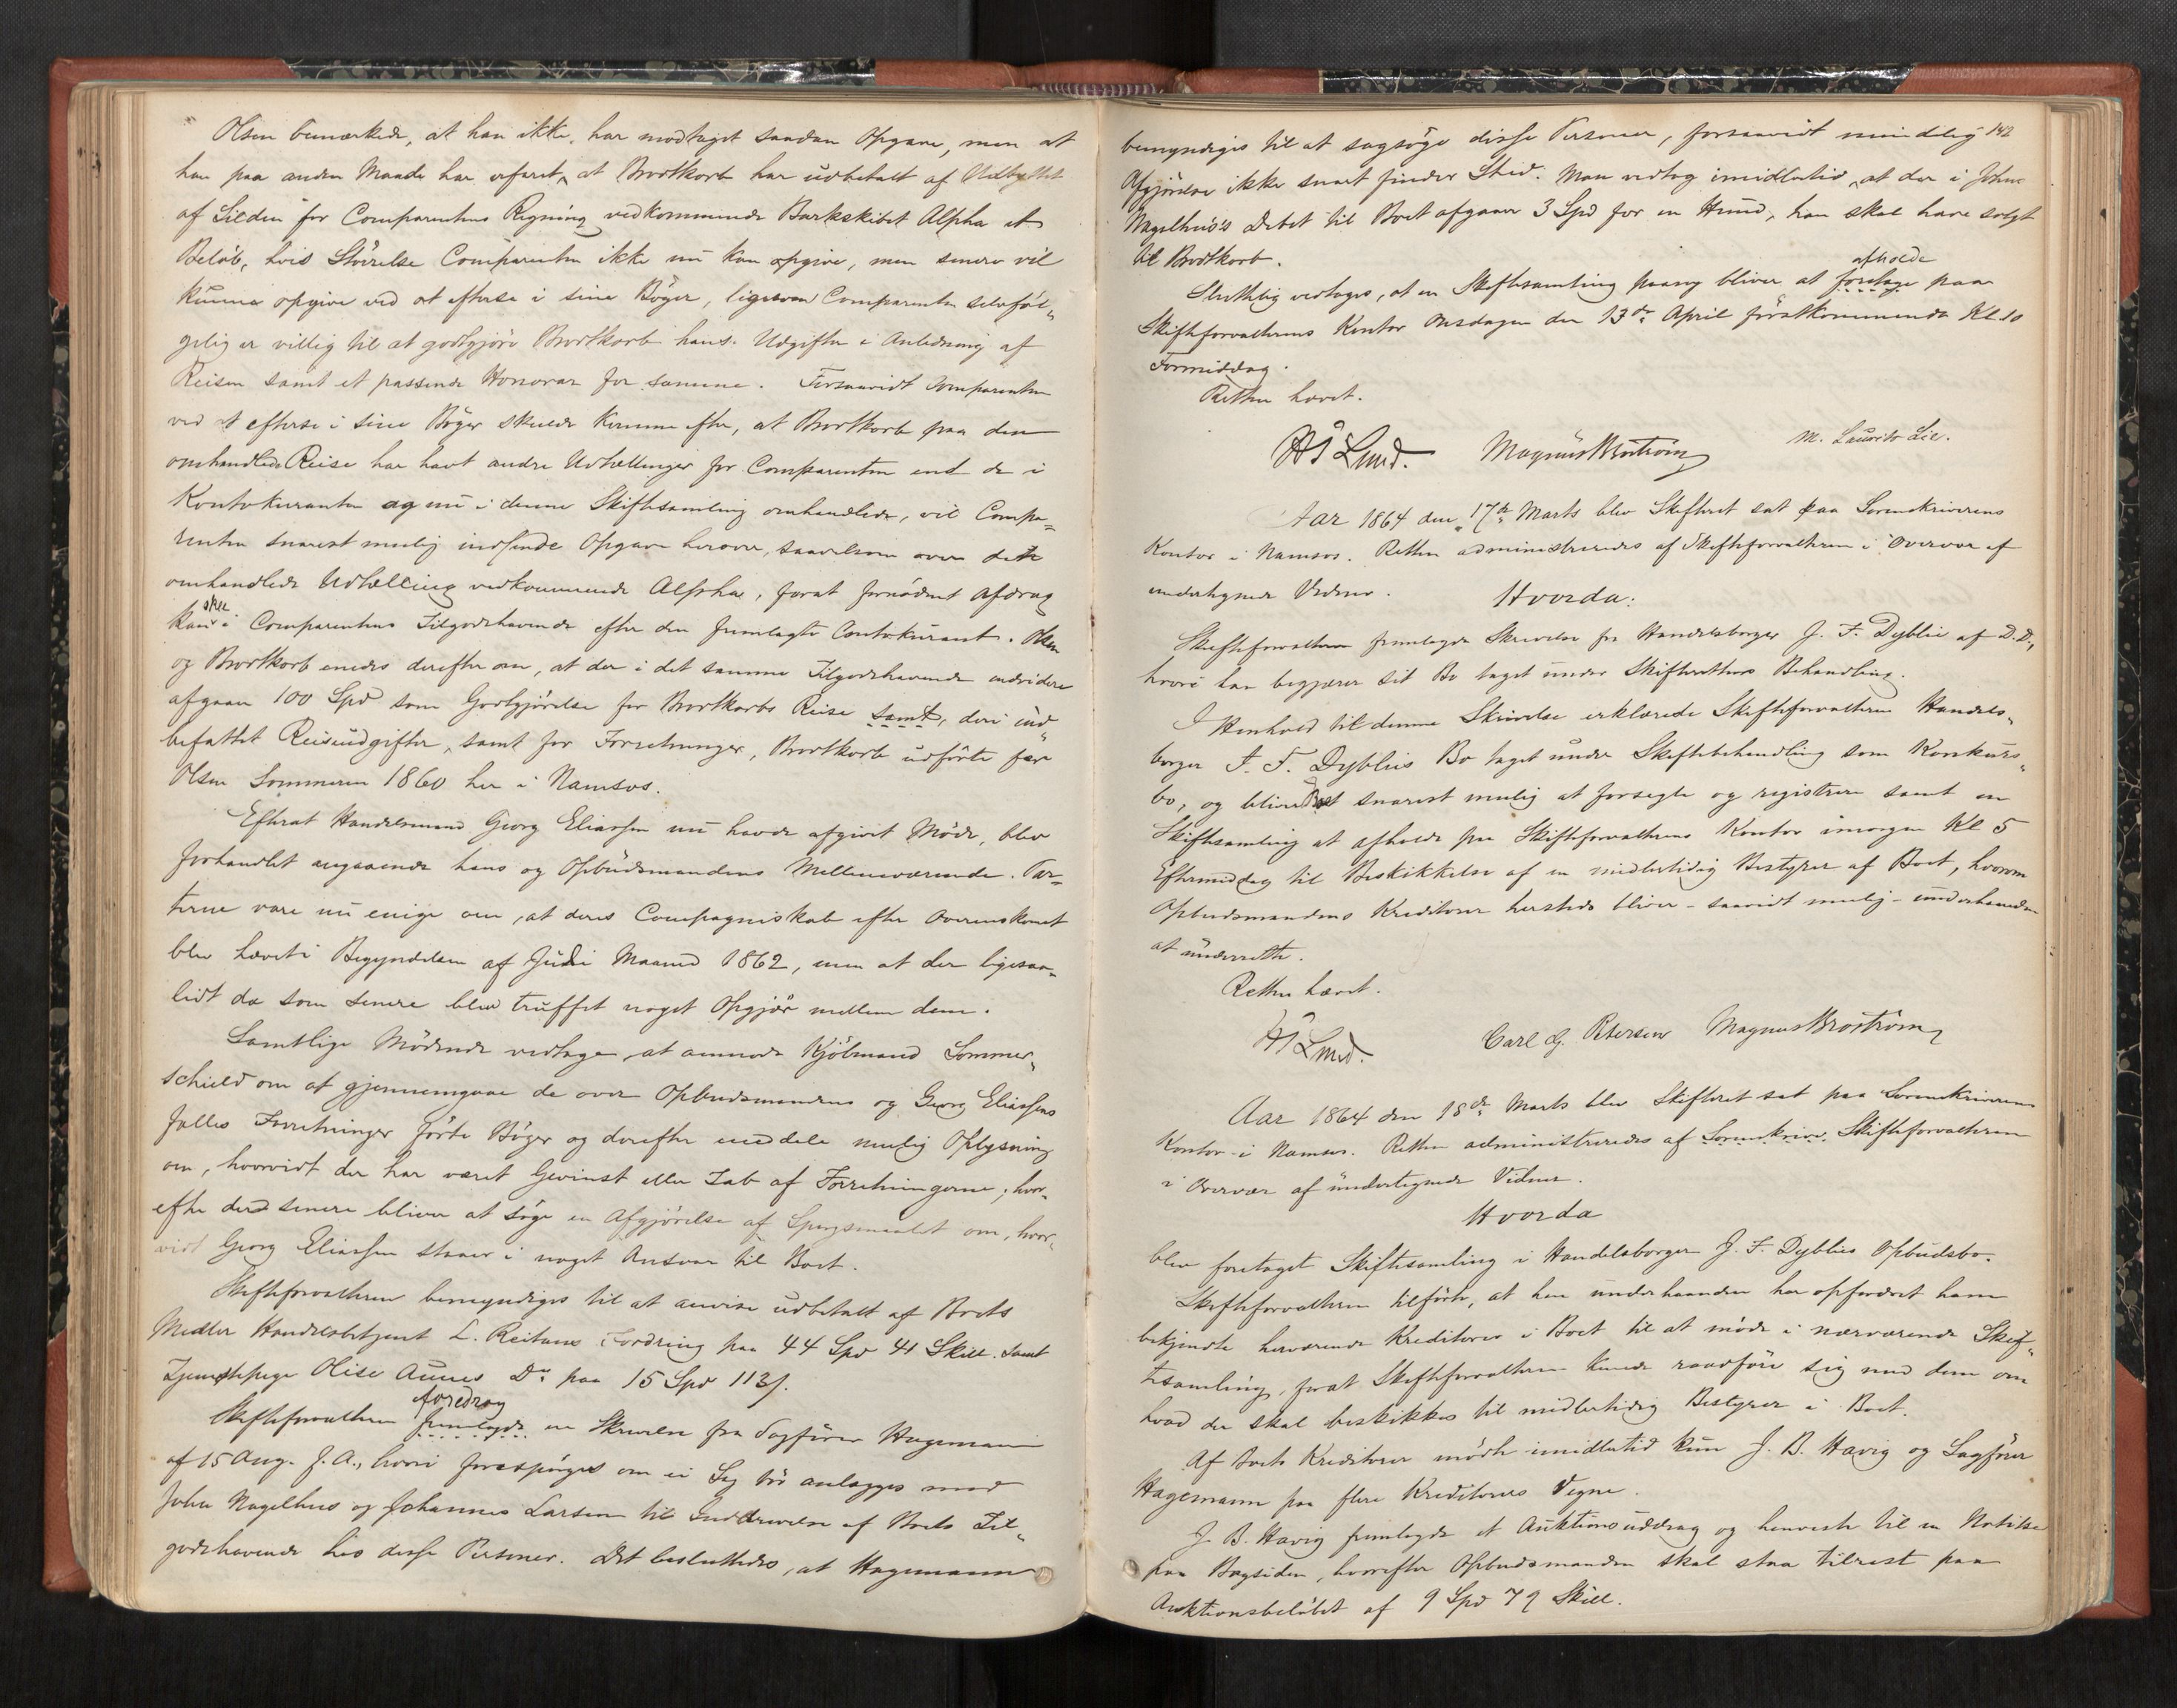 Olsen bemærkede, at han ikke har modtaget saadan Opgave, men at
han paa anden Maade har erfaret, at Brodtkorb har udbetalt af Udbyttet
af Silden for Comparentens Regning vedkommende Barkskibet Alpha et
Beløb, hvis Størrelse Comparenten ikke nu kan opgive, men senere vil
kunne opgive ved at efterse i sine Bøger, ligesom Comparenten selvføl„
gelig er villig til at godtgjøre Brodtkorb hans Udgifter i Anledning af
Reisen samt et passende Honorar for samme. Forsaavidt Comparenten
ved at efterse i sine Bøger skulde komme efter, at Brodtkorb paa den
omhandlede Reise har havt andre Udtællinger for Comparenten end de i
Kontokuranten og nu i denne Skiftesamling omhandlede, vil Compa„
renten snarest mulig indsende Opgave herover, saavelsom over dette
omhandlede Udtælling vedkommende Alpha, forat fornødent Afdrag
kan skee i Comparentens Tilgodehavende efter den fremlagte Contokurant. Olsen
og Brodtkorb enedes derefter om, at der i det samme Tilgodehavende endvidere
afgaaer 100 Spd som Godtgjørelse for Brodtkorbs Reise samt, deri ind„
befattet Reiseudgifter, samt for Forretninger, Brodtkorb udførte for
Olsen Sommeren 1860 her i Namsos.
Efterat Handelsmand Georg Eliassen nu havde afgivet Møde, blev
forhandlet angaaende hans og Opbudsmandens Mellemværende. Par„
terne vare nu enige om, at deres Compagniskab efter Overenskomst
blev hævet i Begyndelsen af Juli Maaned 1862, men at der ligesaa„
lidt da som senere blev truffet noget Opgjør mellem dem.
Samtlige Mødende vedtage, at anmode Kjøbmand Sommer„
schield om at gjennemgaae de over Opbudsmandens og Georg Eliassens
fælles Forretninger førte Bøger og derefter meddele mulig Oplysning
om, hvorvidt der har været Gevinst eller Tab af Forretningerne; hvor„
efter der senere bliver at søge en Afgjørelse af Spørgsmaalet om, hvor„
vidt Georg Eliassen staaer i noget Ansvar til Boet.
Skifteforvalteren bemyndiges til at anvise udbetalt af Boets
Midler Handelsbetjent L. Reitans Fordring paa 44 Spd 41 Skill. samt
Tjenestepige Olise Aunes Do paa 15 Spd 113ſ.
Skifteforvalteren foredrog fremlagde en Skrivelse fra Sagfører Hagemann
af 15 Aug. f. A., hvori forespørges om ei Sag bør anlægges mod
John Nagelhus og Johannes Larsen til Inddrivelse af Boets Til„
godehavende hos disse Personer. Det besluttedes, at Hagemann
142
bemyndiges til at sagsøge disse Personer, forsaavidt mindelig
Afgjørelse ikke snart finder Sted. Man vedtog imidlertid, at der i John
Nagelhus's Debet til Boet afgaaer 3 Spd for en Hund, han skal have solgt
til Brodtkorb.
Sluttelig vedtoges, at en Skiftesamling paany bliver at afholde foretage paa
Skifteforvalterens Kontor Onsdagen den 13de April førstkommende Kl. 10
Formiddag.
Retten hævet.
HSLund. Magnus Brostrøm M. Laurits Lie.
Aar 1864 den 17de Marts blev Skifteret sat paa Sorenskriverens
Kontor i Namsos. Retten administreredes af Skifteforvalteren i Overvær af
undertegnede Vidner.
Hvorda:
Skifteforvalteren fremlagde Skrivelse fra Handelsborger J. F. Dyblie af D. D.,
hvori han begjærer sit Bo taget under Skifterettens Behandling.
I Henhold til denne Skrivelse erklærede Skifteforvalteren Handels„
borger J. F. Dyblies Bo taget under Skiftebehandling som Konkurs„
bo, og bliver Boet snarest mulig at forsegle og registrere samt en
Skiftesamling at afholde paa Skifteforvalterens Kontor imorgen Kl 5
Eftermiddag til Beskikkelse af en midlertidig Bestyrer af Boet, hvorom
Opbudsmandens Kreditorer hersteds bliver – saavidt mulig – underhaanden
at underrette.
Retten hævet.
HSLund. Carl G. Petersen Magnus Brostrøm
Aar 1864 den 18de Marts blev Skifteret sat paa Sorenskriverens
Kontor i Namsos. Retten administreredes af Sorenskriver Skifteforvalteren
i Overvær af undertegnede Vidner.
Hvorda
blev foretaget Skiftesamling i Handelsborger J. F. Dyblies Opbudsbo.
Skifteforvalteren tilførte, at han underhaanden har opfordret ham
bekjendte herværende Kreditorer i Boet til at møde i nærværende Skif„
tesamling, forat Skifteforvalteren kunde raadføre sig med dem om
hvad der skal beskikkes til midlertidig Bestyrer i Boet.
Af Boets Kreditorer mødte imidlertid kun J. B. Havig og Sagfører
Hagemann paa flere Kreditorers Vegne.
J. B. Havig fremlagde et Auktionsuddrag og henviste til en Notitse
paa Bagsiden, hvorefter Opbudsmanden skal staa tilrest paa
Auktionsbeløbet af 9 Spd 79 Skill.